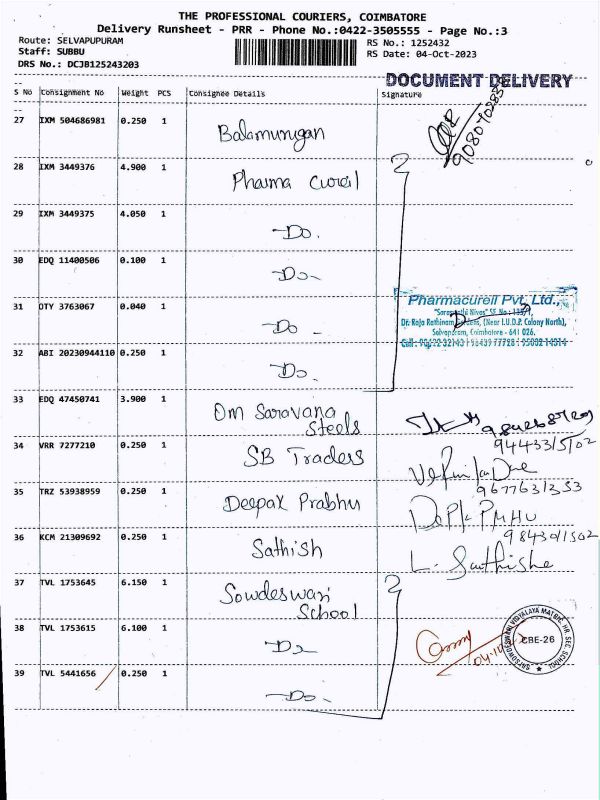 THE PROFESSIONAL COURIERS, COIMBATORE
Delivery Runsheet - PRR - Phone No.:0422-3505555 - Page No.:3
Route: SELVAPUPURAM RS No.: 1252432
Staff: SUBBU RS Date: 04-Oct-2023
DRS No.: DCJB125243203
DOCUMENT DELIVERY
S No Consignment No Weight PCS Consignee Details Signature
27 IXM 504686981 0.250 1 Balamurugan
28 IXM 3449376 4.900 1 Pharma Cureil
29 IXM 3449375 4.050 1 -Do.
30 EDQ 11400506 0.100 1 -Do-
Pharmacureil Pvt. Ltd.,
31 OTY 3763067 0.040 1 -Do-
Dr. Raja Rathinam Gardens, (Near I.U.D.P. Colony North),
Selvapuram, Coimbatore - 641 026.
32 ABI 20230944110 0.250 1 -Do.
33 EDQ 47450741 3.900 1 Om Saravana
Steels
34 VRR 7277210 0.250 1 SB Traders
9677631353
35 TRZ 53938959 0.250 1 Deepak Prabhu
36 KCM 21309692 0.250 1 Sathish
L. Sathishe
37 TVL 1753645 6.150 1 Sowdeswari
School
38 TVL 1753615 6.100 1 -Do-
CBE-26
39 TVL 5441656 0.250 1 -Do.